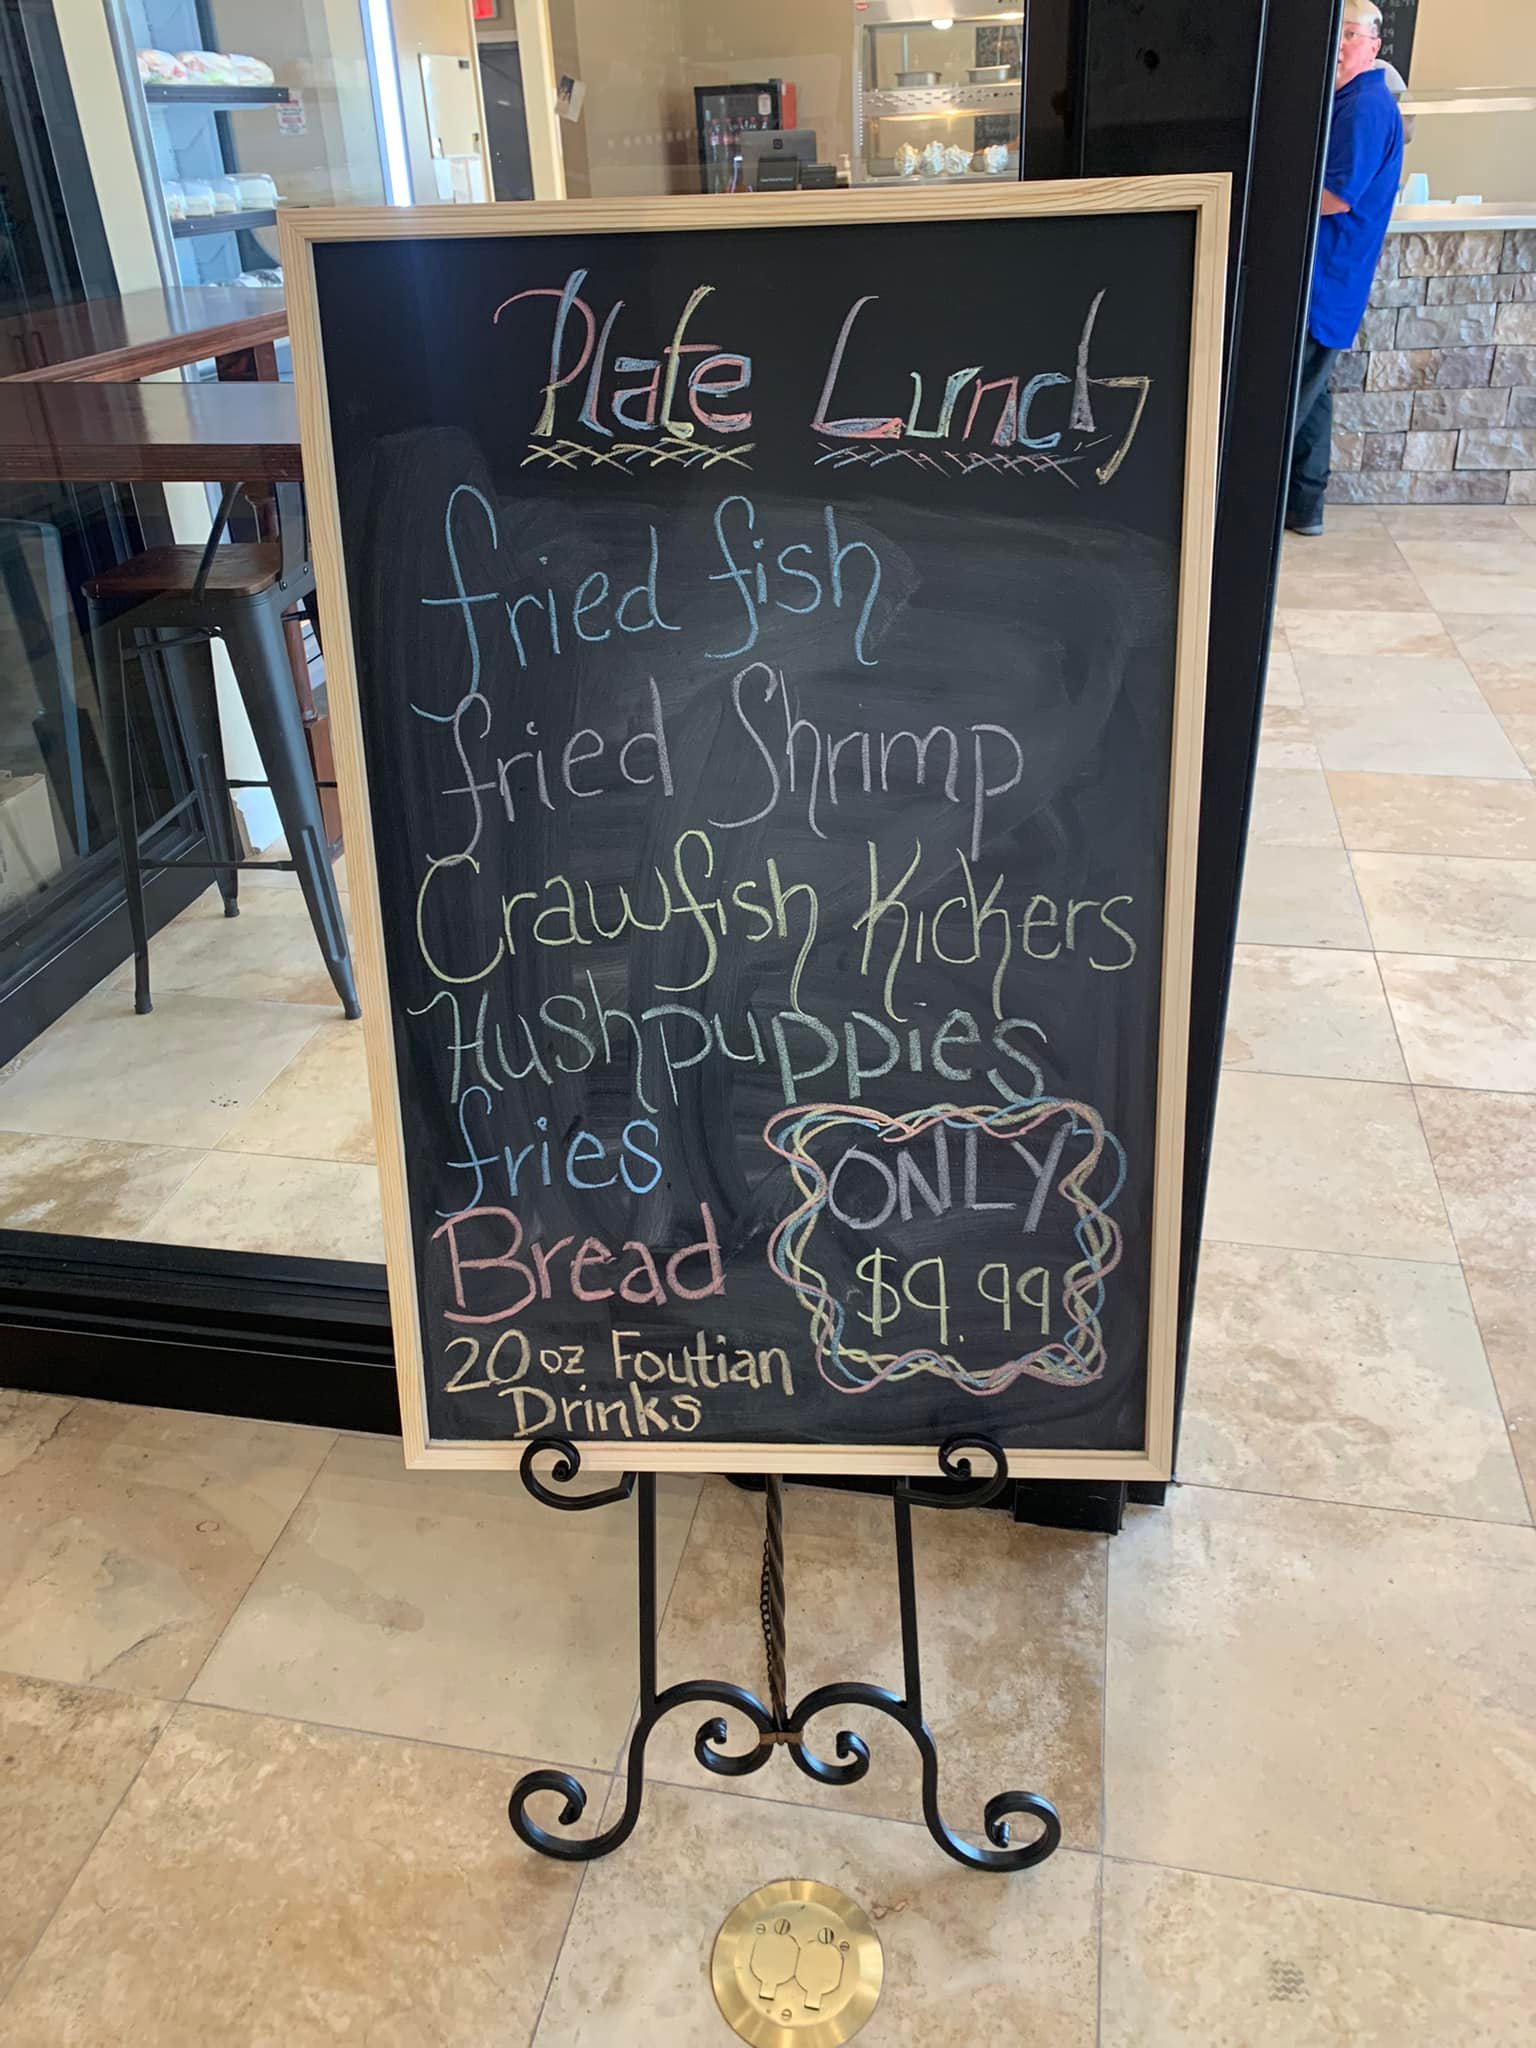 Plate Lunch
fried fish
fried Shrimp
Crawfish Kickers
Hushpuppies
fries
Bread
20 oz Foutian
Drinks
ONLY
$9.99